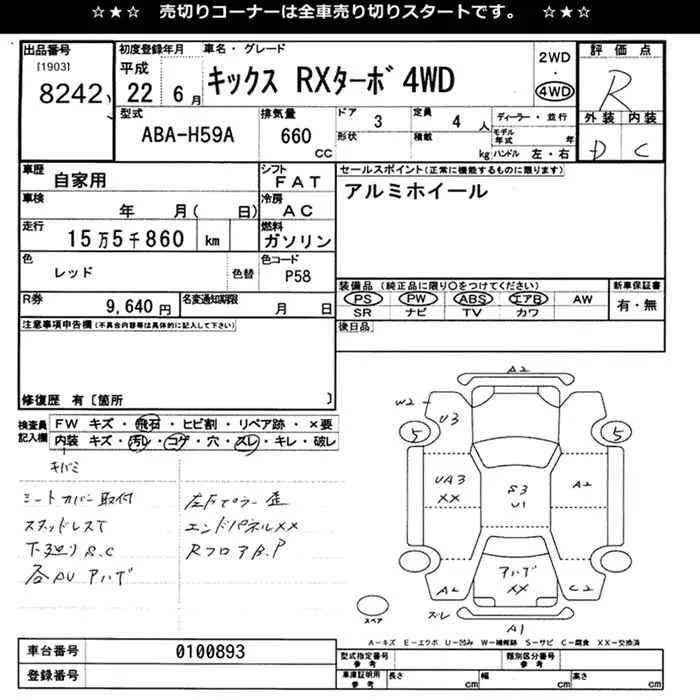 ☆★☆ 売切りコーナーは全車売り切りスタートです。 ☆★☆
出品番号 [1903] 8242
初度登録年月 平成 22 6月
車名・グレード キックス RXターボ 4WD
2WD ・ 4WD
評価点 R
外装 内装
D C
型式 ABA-H59A
排気量 660 CC
ドア 3
定員 4 人
形状
積載 kg
ディーラー・並行
モデル年式 年
ハンドル 左・右
車歴 自家用
シフト FAT
車検 年 月( 日)
冷房 AC
走行 15万5千860 km
燃料 ガソリン
色 レッド 色替
色コード P58
R券 9,640円
名変通知期限 月 日
セールスポイント(正常に機能するものに限ります)
アルミホイール
装備品 (純正品に限り○をつけてください)
PS PW ABS エアB AW
SR ナビ TV カワ
新車保証書 有・無
後日品
注意事項申告欄(不具合内容等は具体的に記入して下さい)
修復歴 有〔箇所 〕
検査員記入欄
FW キズ・飛石・ヒビ割・リペア跡・×要
内装 キズ・汚レ・コゲ・穴・スレ・キレ・破レ
キバミ
シートカバー取付
スタッドレスT
下廻りS.C
各AU アハゲ
左Fピラー歪
エンドパネルXX
RフロアB.P
A2
W2
U3
5
5
UA3
XX
S3
U1
A2
アハゲ
XX
A2
C2
スレ
A1
スペア
A-キズ E-エクボ U-凹み W-補修跡 S-サビ C-腐食 XX-交換済
車台番号 0100893
登録番号
型式指定番号 参考
類別区分番号 参考
車庫証明用 参考 長さ cm 幅 cm 高さ cm